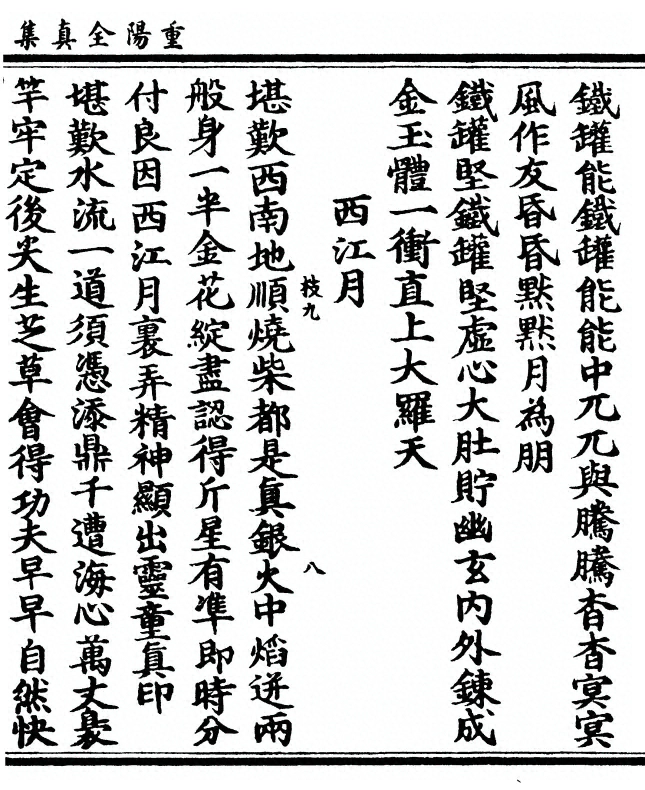 重陽全真集
鐵罐能鐵罐能能中兀兀與騰騰杳杳冥冥
風作友昏昏默默月為朋
鐵罐堅鐵罐堅虛心大肚貯幽玄內外鍊成
金玉體一衝直上大羅天
西江月
枝九 八
堪歎西南地順燒柴都是真銀火中焰迸兩
般身一半金花綻盡認得斤星有準即時分
付良因西江月裏弄精神顯出靈童真印
堪歎水流一道須憑添鼎千遭海心萬丈裊
竿牢定後災生芝草會得功夫早早自然快